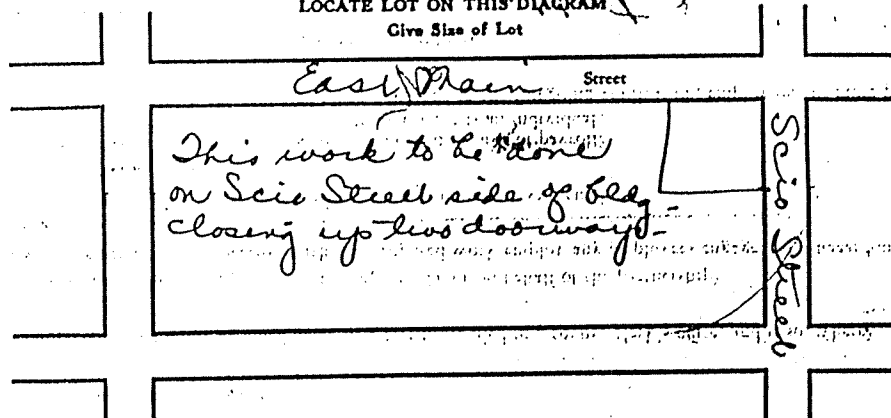 LOCATE LOT ON THIS DIAGRAM
Give Size of Lot
East Main Street
This work to be done
on Scio Street side of bldg -
closing up two doorways -
Scio Street